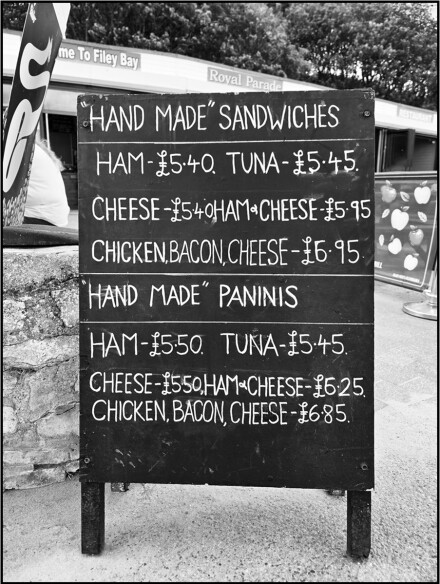 me To Filey Bay
Royal Parade
RESTAURANT
"HAND MADE" SANDWICHES
HAM-£5·40. TUNA-£5·45.
CHEESE-£5·40HAM&CHEESE-£5·95
CHICKEN,BACON,CHEESE-£6·95.
"HAND MADE" PANINIS
HAM-£5·50. TUNA-£5·45.
CHEESE-£550,HAM&CHEESE-£6·25.
CHICKEN, BACON, CHEESE-£6·85.